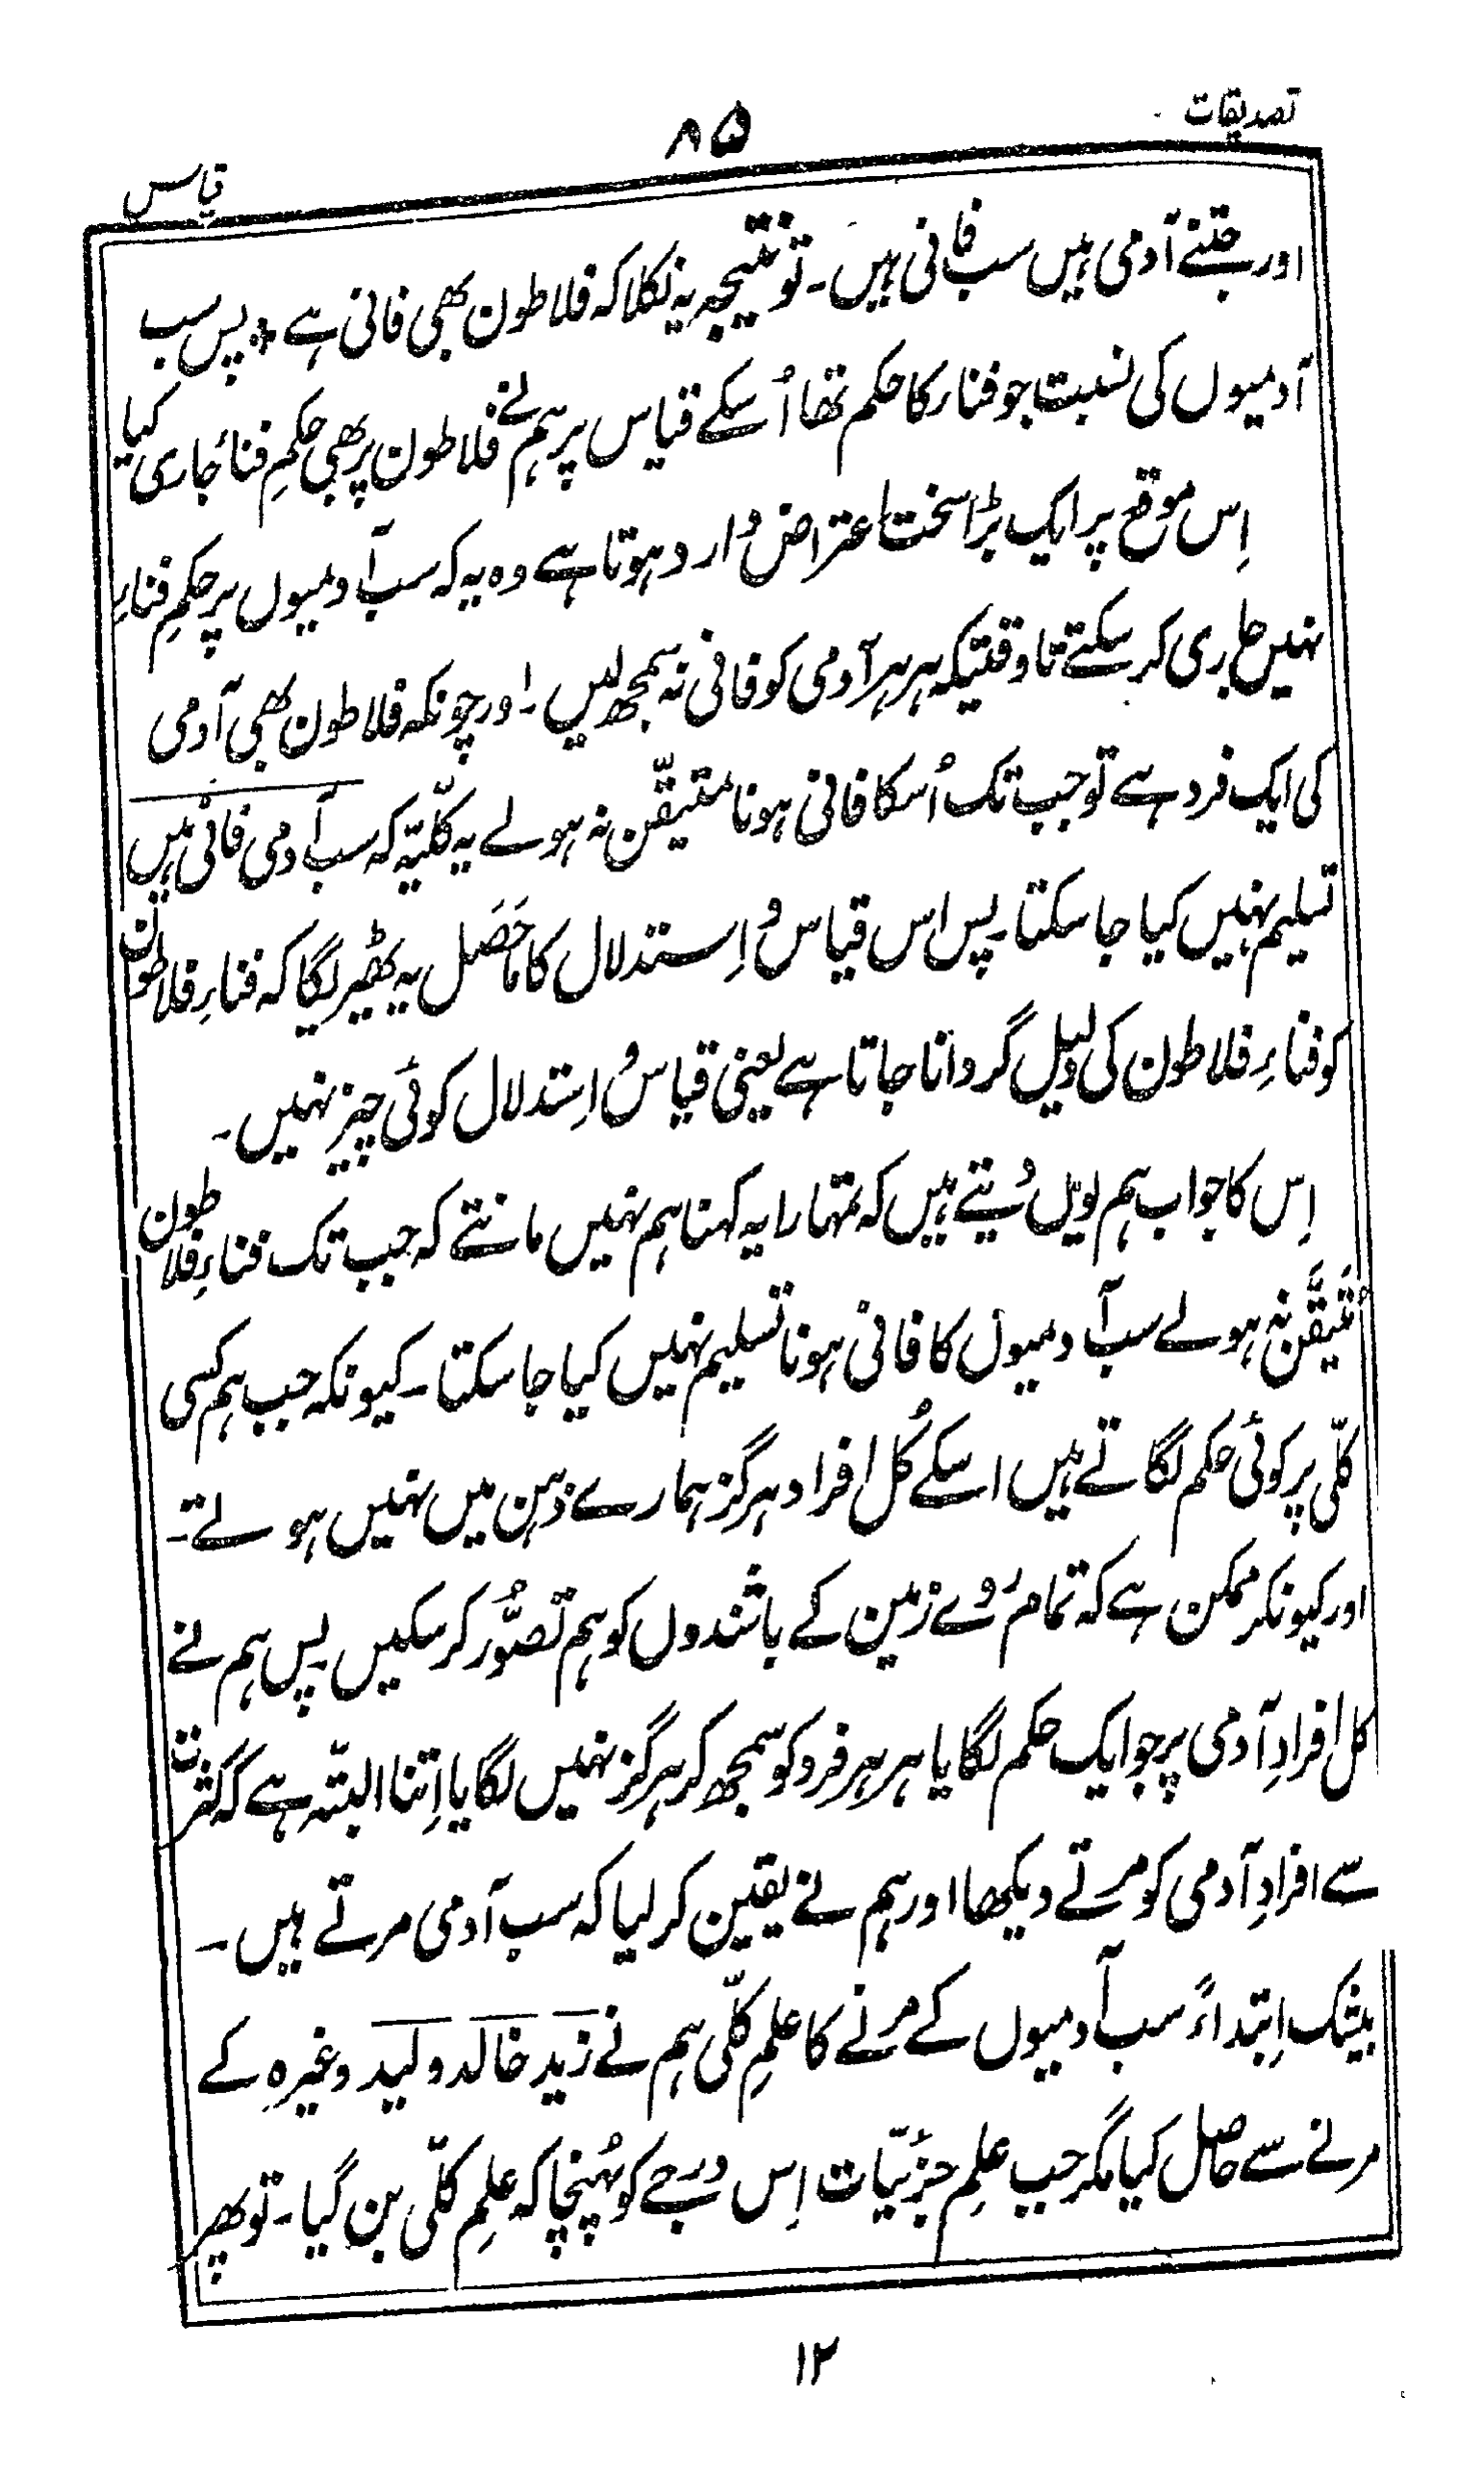 تصدیقات
۸۵
قیاس
اور جتنے آدمی ہیں سب فانی ہیں۔ تو نتیجہ یہ نکلا کہ فلاطون بھی فانی ہے ٭ پس سب
آدمیوں کی نسبت جو فناء کا حکم تھا اُسکے قیاس پر ہم نے فلاطون پر بھی حکمِ فناء جاری کیا
اِس موقع پر ایک بڑا سخت اعتراض وارد ہوتا ہے وہ یہ کہ سب آدمیوں پر حکمِ فناء
نہیں جاری کر سکتے تا وقتیکہ ہر ہر آدمی کو فانی نہ سمجھ لیں۔ اور چونکہ فلاطون بھی آدمی
کی ایک فرد ہے تو جب تک اُسکا فانی ہونا متیقّن نہ ہولے یہ کلّیّہ کہ سب آدمی فانی ہیں
تسلیم نہیں کیا جا سکتا۔ پس اس قیاس و اِستدلال کا ماحَصَل یہ ٹھیریگا کہ فناءِ فلاطون
کو فناءِ فلاطون کی دلیل گردانا جاتا ہے یعنی قیاس و اِستدلال کوئی چیز نہیں۔
اِس کا جواب ہم یوں دیتے ہیں کہ تمہارا یہ کہنا ہم نہیں مانتے کہ جب تک فناءِ فلاطون
مُتَیَقَّن نہ ہولے سب آدمیوں کا فانی ہونا تسلیم نہیں کیا جا سکتا۔ کیونکہ جب ہم کسی
کلّی پر کوئی حکم لگاتے ہیں اسکے کُل افراد ہرگز ہمارے ذہن میں نہیں ہولتے۔
اور کیونکر ممکن ہے کہ تمام رُوے زمین کے باشندوں کو ہم تصوُّر کر سکیں پس ہم نے
کل افرادِ آدمی پر جو ایک حکم لگایا ہر ہر فرد کو سمجھ کر ہرگز نہیں لگایا اِتنا البتّہ ہے کہ کثرت
سے افرادِ آدمی کو مرتے دیکھا اور ہم نے یقین کر لیا کہ سب آدمی مرتے ہیں۔
بیشک اِبتداءً سب آدمیوں کے مرنے کا علمِ کلّی ہم نے زید خالد ولید وغیرہ کے
مرنے سے حاصل کیا مگر جب علمِ جزئیّات اِس درجے کو پُہنچا کہ علمِ کلّی بن گیا۔ تو پھر
۱۲